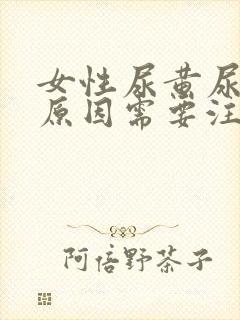 女性尿黄尿
原因需要注
阿倍野茶子